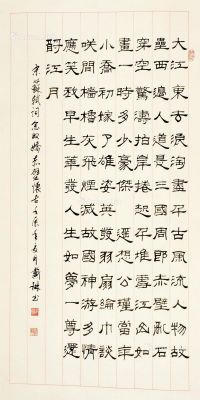 大江東去浪淘盡千古風流人物故
壘西邊人道是三國周郎赤壁亂石
穿空驚濤拍岸捲起千堆雪江山如
畫一時多少豪傑遙想公瑾當年
小喬初嫁了雄姿英發羽扇綸巾談
咲間檣櫓灰飛煙滅故國神游多情
應笑我早生華髮人生如夢一尊還
酹江月
宋蘇軾詞念奴嬌赤壁懷古